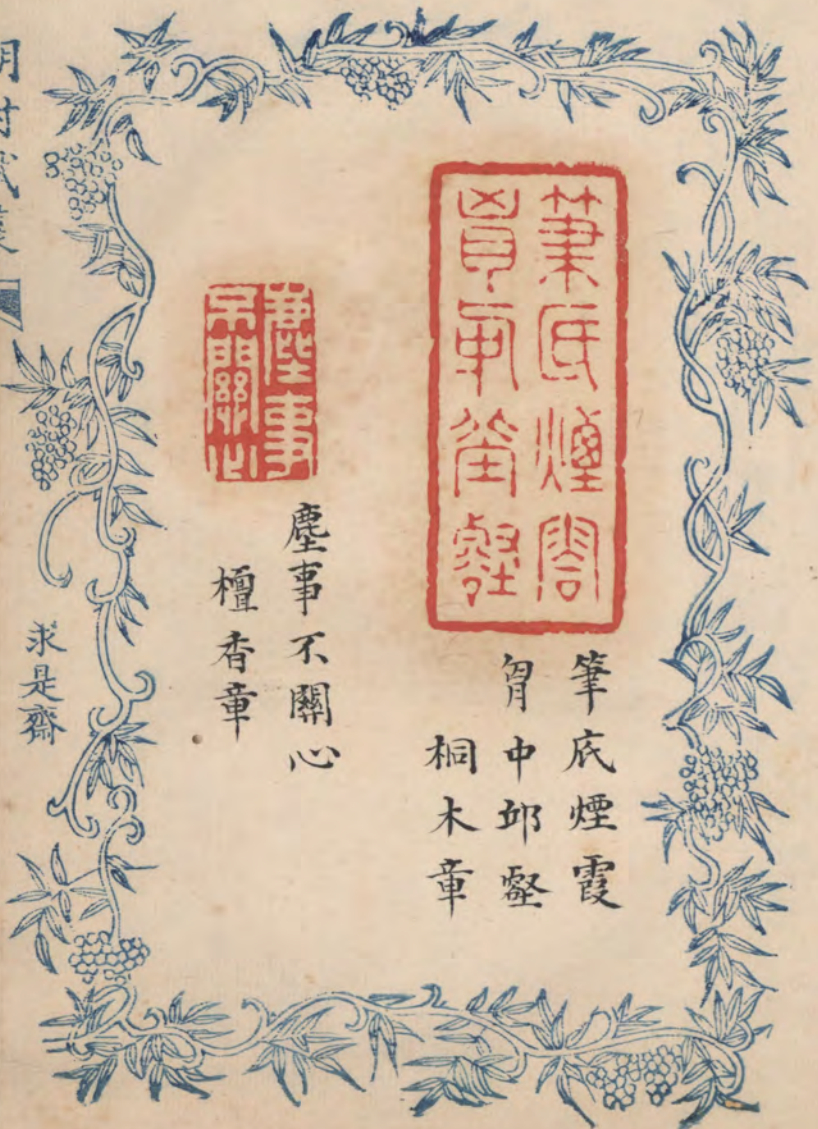 筆底煙霞
胷中邱壑
筆底煙霞
胷中邱壑
桐木章
塵事
不關心
塵事不關心
檀香章
求是齋